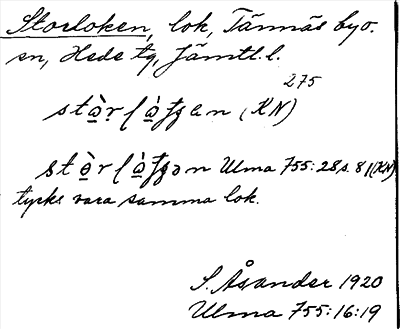 Storloken, lok, Tännäs byo.
sn, Hede tg, Jämtl. l.
275
(KN)
Ulma 755:28 s. 81 (KN)
tycks vara samma lok.
S. Åsander 1920
Ulma 755:16:19